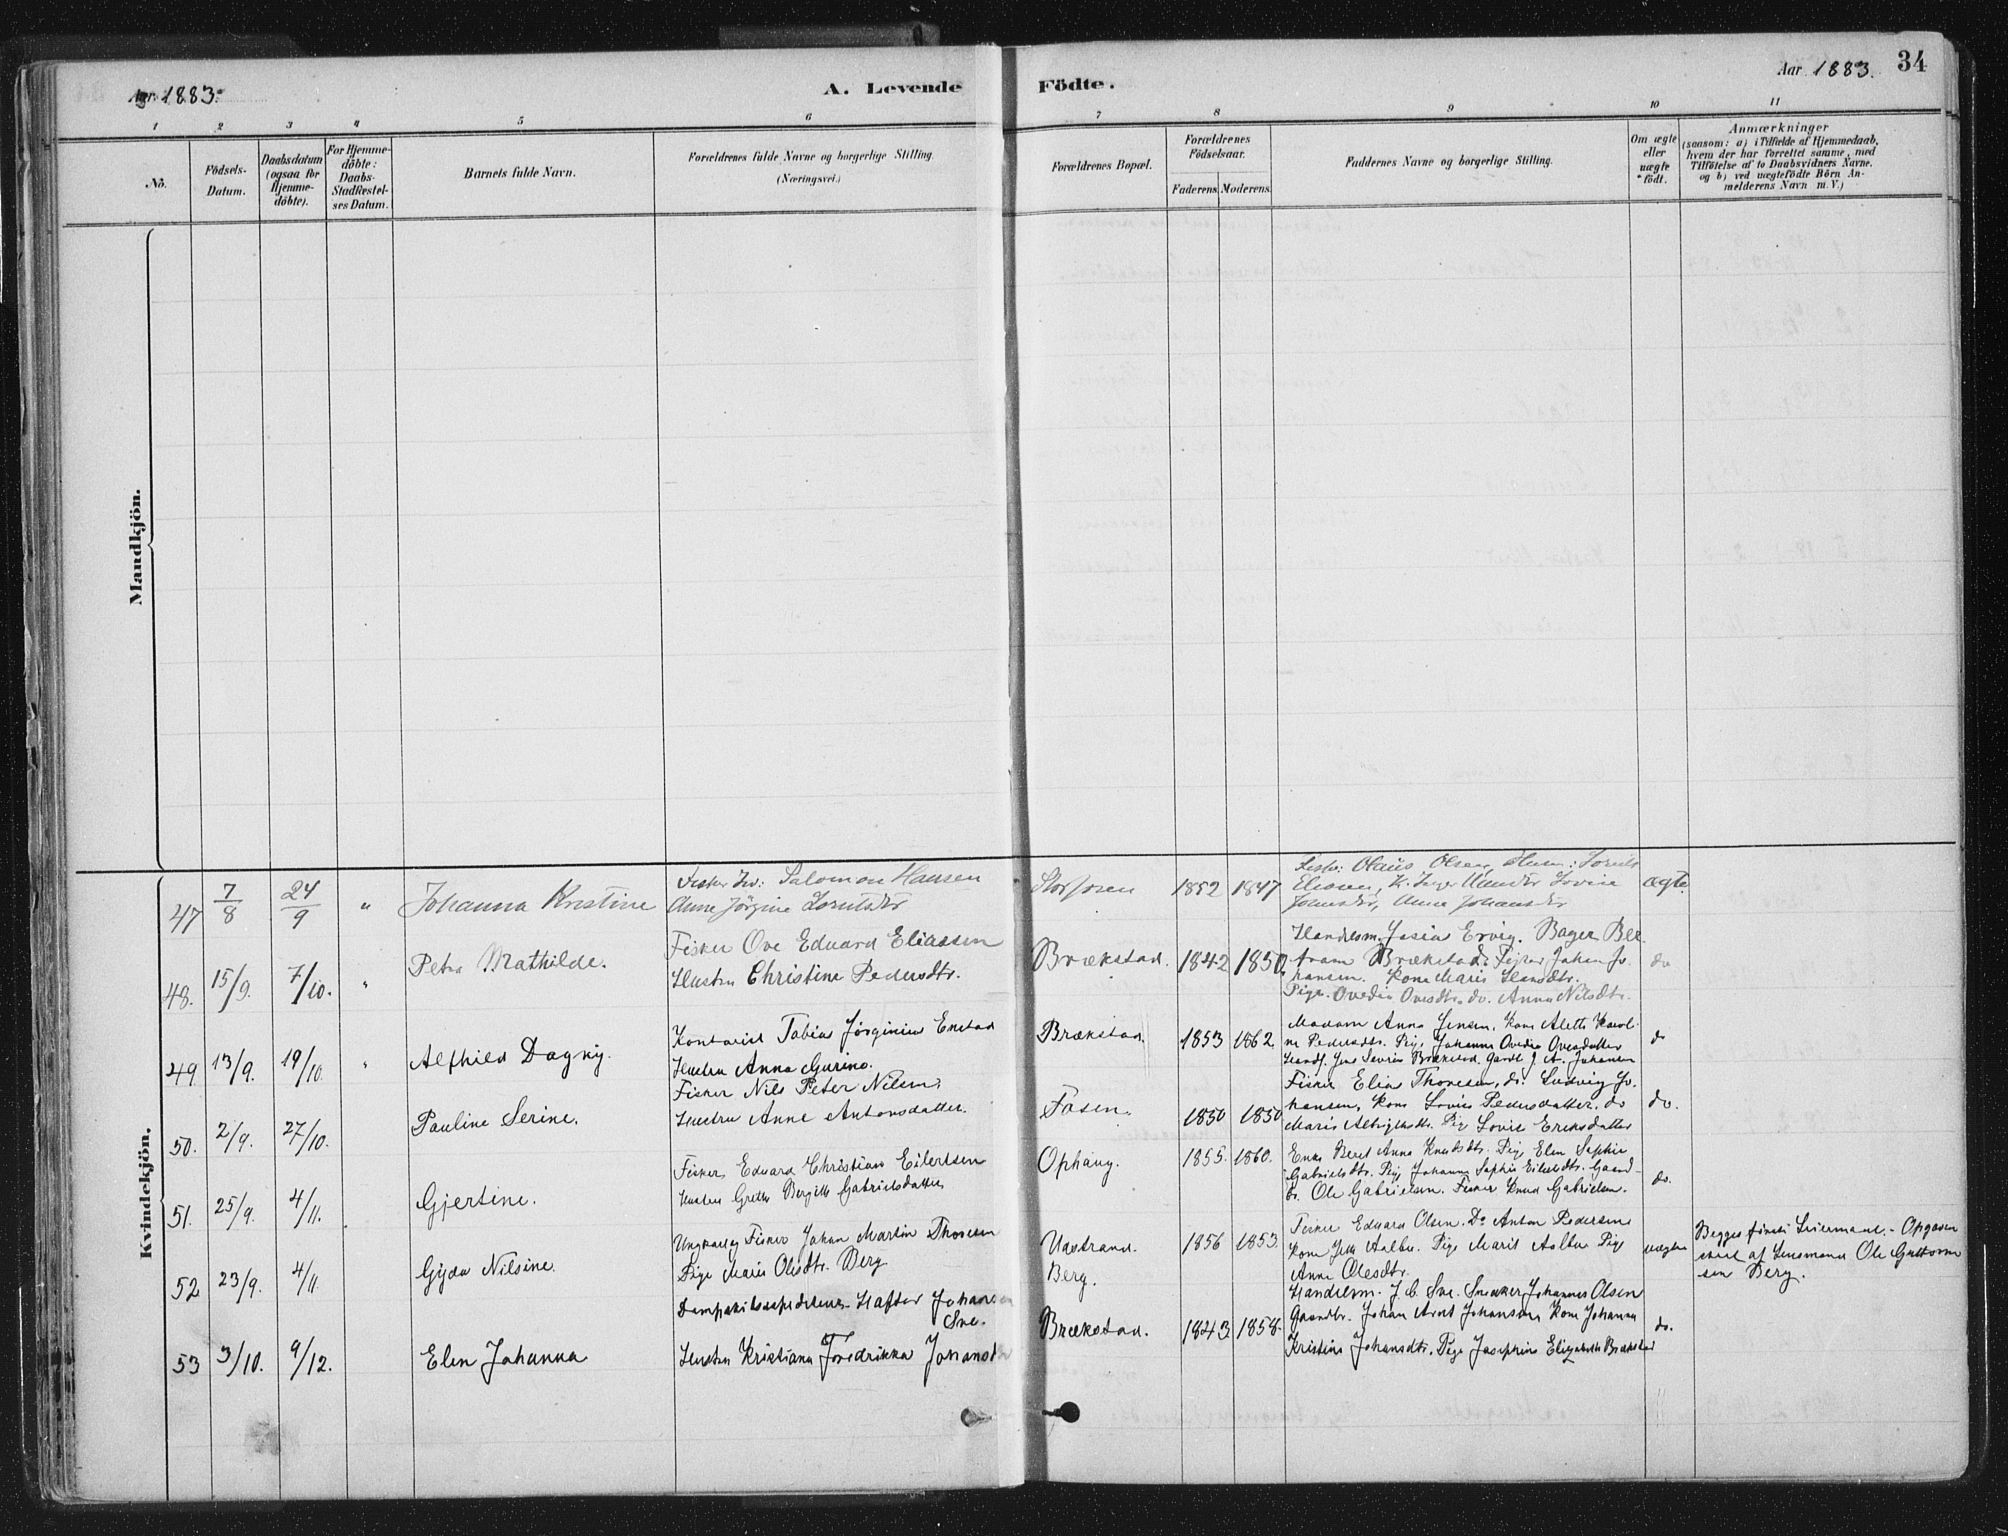 Aar 1883.
A. Levende
Födte.
Aar 1883.
34
1 2 3 4 5 6 7 8 9 10 11
No.
Födsels-Datum.
Daabsdatum (ogsaa for Hjemme-döbte).
For Hjemme-döbte: Daabs-Stadfæstel-ses Datum.
Barnets fulde Navn.
Forældrenes fulde Navne og borgerlige Stilling.
(Næringsvei.)
Forældrenes Bopæl.
Forældrenes Födselsaar.
Faderens. Moderens.
Faddernes Navne og borgerlige Stilling.
Om ægte eller uægte födt.
Anmærkninger
(saasom: a) i Tilfælde af Hjemmedaab,
hvem der har forrettet samme, med
Tilföielse af to Daabsvidners Navne.
og b) ved uægtefödte Börn An-
melderens Navn m. V.)
Mandkjön.
Kvindekjön.
47 7/8 24/9 " Johanna Kristine
Salomon Hansen
Anne Jörgine
Storfosen 1852 1847
Olaus Olsen,
Anne
ægte.
48. 15/9. 7/10. " Petra Mathilde.
Fisker Ove Eduard Eliassen
Hustru Christine Pedersdtr.
Brækstad. 1842 1850
Handelsm. Josias Ervig. Bager Ber
tram Brækstad. Fisker Johan Jo
hansen. Kone Maris Hansdtr.
Pige. Ovedia Ovesdtr. do. Anna Nilsdtr.
do
49. 13/9. 19/10. " Alfhild Dagny.
Kontorist Tobias Jørginius Enstad
Hustru Anna Gurine.
Brækstad. 1853 1862.
Madam Anna Jensen. Kone Aletta Karol
ne Pedersdtr. Pige Johanna Ovedia Ovesdatter
Handl. Jens Severin Brækstad, Gardb. J. A. Johansen
do
50. 2/9. 27/10. Pauline Serine.
Fisker Nils Peter Nilsen
Hustru Anne Antonsdatter.
Fosen. 1850 1850
Fisker Elias Thoresen, do. Ludvig Jo.
hansen, Kone Lovise Pedersdatter, do
Maris Pige Lovise Eriksdatter
do.
51. 25/9. 4/11. Gjertine.
Fisker Eduard Christian Eilertsen
Hustru Grethe Bergitte Gabrielsdatter
Ophaug. 1855. 1860.
Enke Beret Anna Knudsdtr. Pige Elen Sophie
Gabrielsdtr. Pige Johanna Sophie Eilertsdtr. Gaard-
br. Ole Gabrielsen. Fisker Knud Gabrielsen.
do.
52 23/9. 4/11. Gyda Nilsine.
Ungkarl og Fisker Johan Martin Thoresen
Pige Maris Olesdtr. Berg
Uastrand.
Berg.
1856 1853.
Fisker Eduard Olsen. Do Anton Pedersen
Kone Aalbu. Pige Marit Aalbu Pige
Anne Olesdtr.
uægte
Begges første Leiermaal. - Opgaven
skeet af Lensmand Ole Guttorm
sen Berg.
53 3/10. 9/12. Elen Johanna
Dampskibsexpeditør Hafter Johan
Sve.
Hustru Kristiana Fredrikka Johansdtr
Brækstad. 1843. 1858.
Handelsm. J. C. Sve. Snedker Johannes Olsen
Gaardbr. Johan Arnt Johansen, Kone Johanna
Kristine Johansdtr. Pige Josephine Elizabeth Brækstad
do.